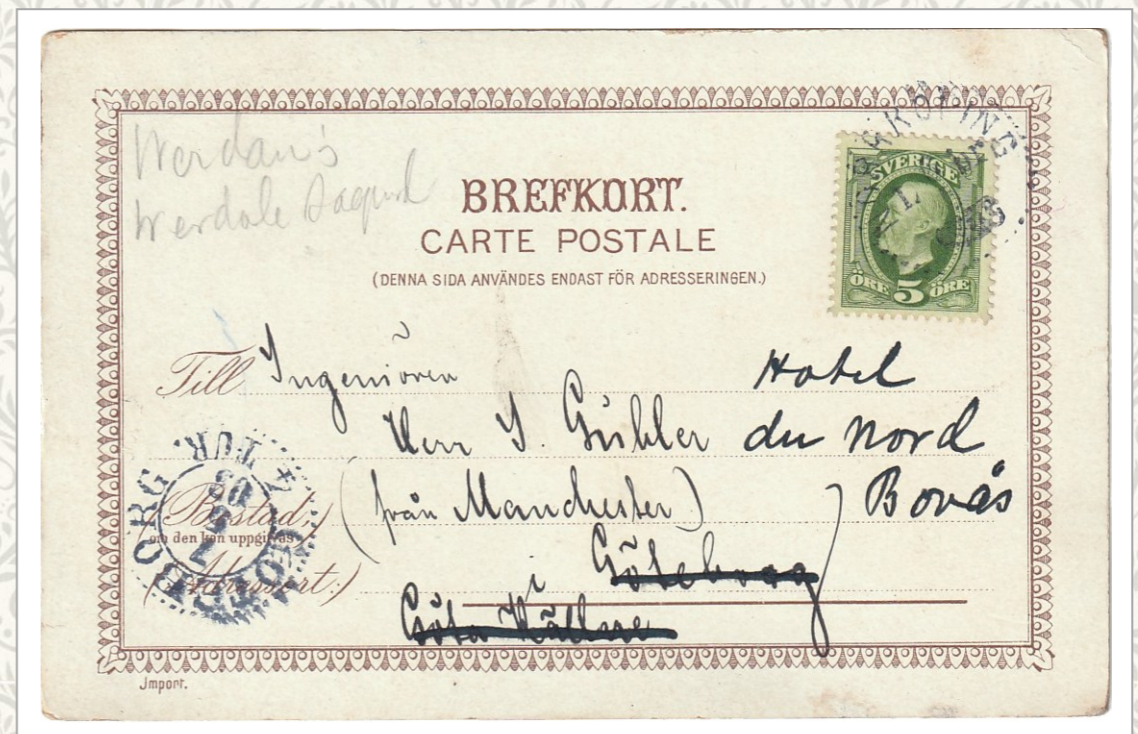 Werdau's
Werdale
BREFKORT.
CARTE POSTALE
(DENNA SIDA ANVÄNDES ENDAST FÖR ADRESSERINGEN.)
SVERIGE
ÖRE 5 ÖRE
Till Ingeniören
Herr J. Gübler
(från Manchester)
i Göteborg
Göta Källare
Hotel
du Nord
Borås
Bostad,
om den kan uppgifvas
(Adressort.)
GÖTEBORG
1 TUR.
7
03
Import.